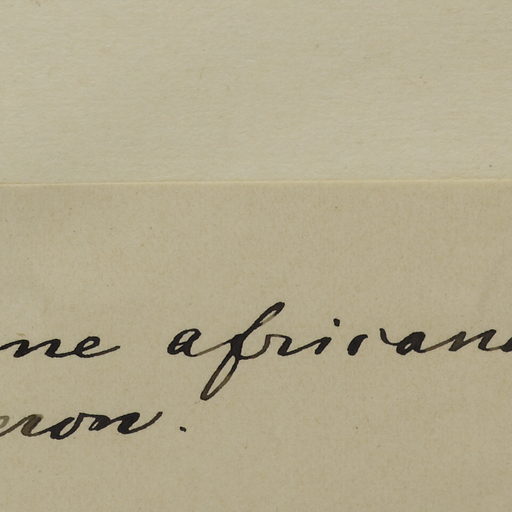 ne african
eron.